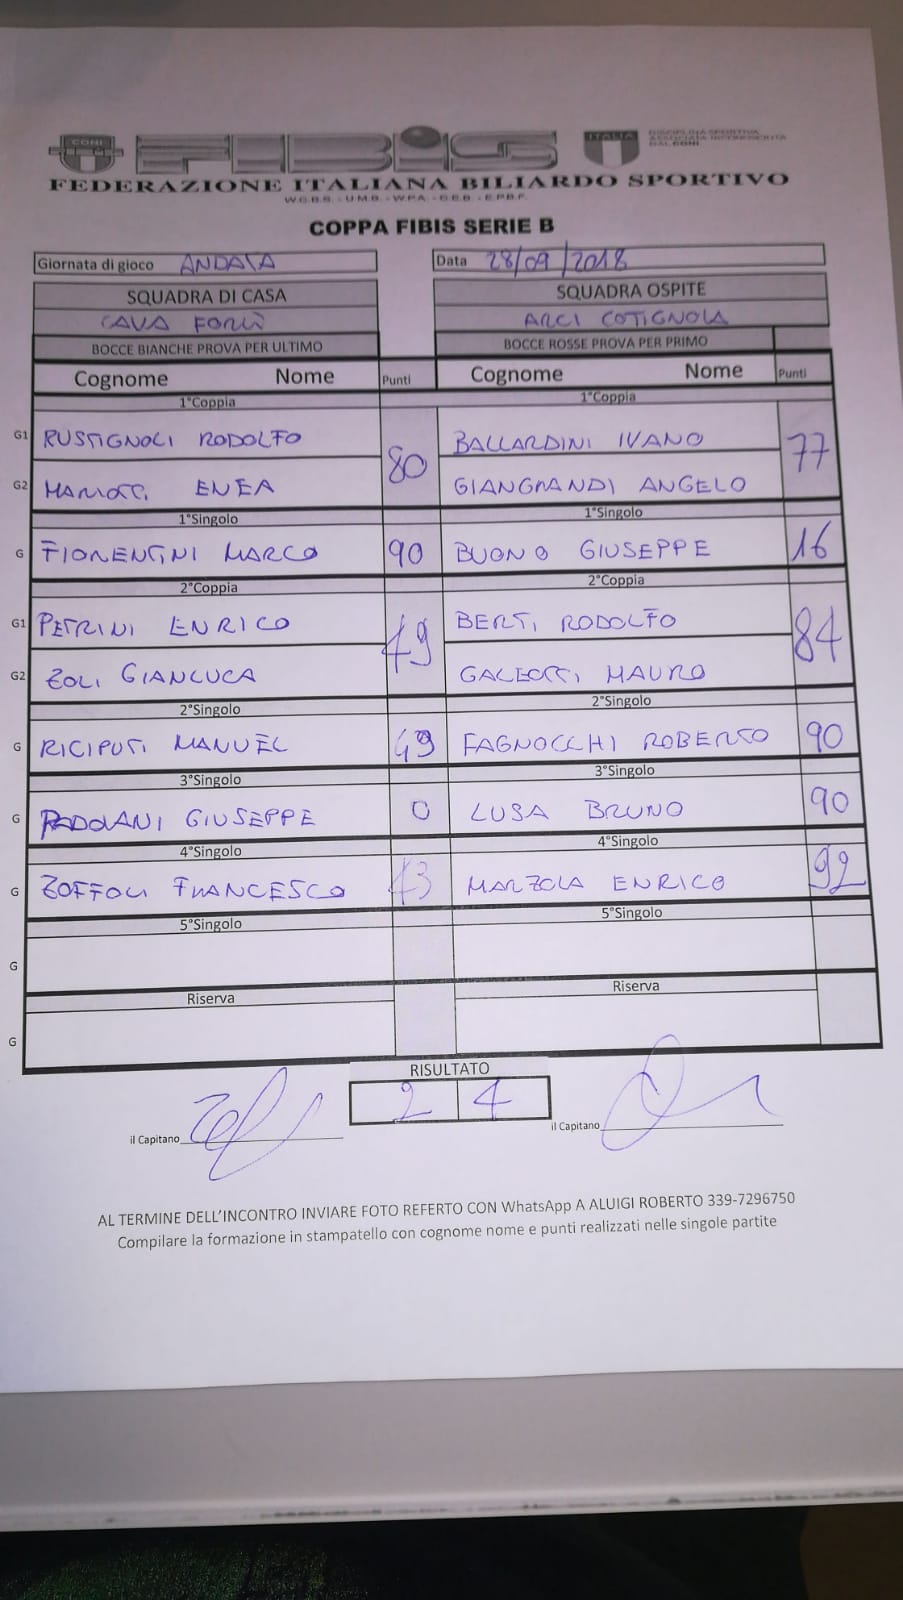 CONI FIBiS ITALIA DISCIPLINA SPORTIVA
ASSOCIATA RICONOSCIUTA
DAL CONI
FEDERAZIONE ITALIANA BILIARDO SPORTIVO
W.C.B.S. - U.M.B. - W.P.A. - C.E.B. - E.P.B.F.
COPPA FIBIS SERIE B
Giornata di gioco ANDATA Data 28/09/2018
SQUADRA DI CASA SQUADRA OSPITE
CAVA FORLÌ ARCI COTIGNOLA
BOCCE BIANCHE PROVA PER ULTIMO BOCCE ROSSE PROVA PER PRIMO
Cognome Nome Punti Cognome Nome Punti
1°Coppia 1°Coppia
G1 RUSTIGNOLI RODOLFO 80 BALLARDINI IVANO 77
G2 MARIOTTI ENEA GIANGRANDI ANGELO
1°Singolo 1°Singolo
G FIORENTINI MARCO 90 BUONO GIUSEPPE 16
2°Coppia 2°Coppia
G1 PETRINI ENRICO BERTI RODOLFO 84
G2 ZOLI GIANLUCA GALEOTTI MAURO
2°Singolo 2°Singolo
G RICIPUTI MANUEL FAGNOCCHI ROBERTO 90
3°Singolo 3°Singolo
G PADOVANI GIUSEPPE 0 LUSA BRUNO 90
4°Singolo 4°Singolo
G ZOFFOLI FRANCESCO MARZOLA ENRICO 92
5°Singolo 5°Singolo
G
Riserva Riserva
G
RISULTATO
2 4
il Capitano il Capitano
AL TERMINE DELL'INCONTRO INVIARE FOTO REFERTO CON WhatsApp A ALUIGI ROBERTO 339-7296750
Compilare la formazione in stampatello con cognome nome e punti realizzati nelle singole partite